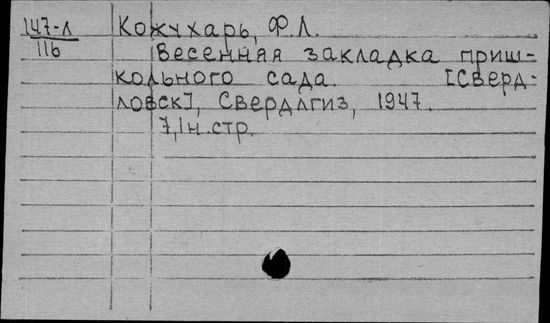 147-Л Кожухарь, Ф.Л.
116
Весенняя закладка приш-
кольного сада. [Сверд-
ловск], Свердлгиз, 1947.
7,1н.стр.